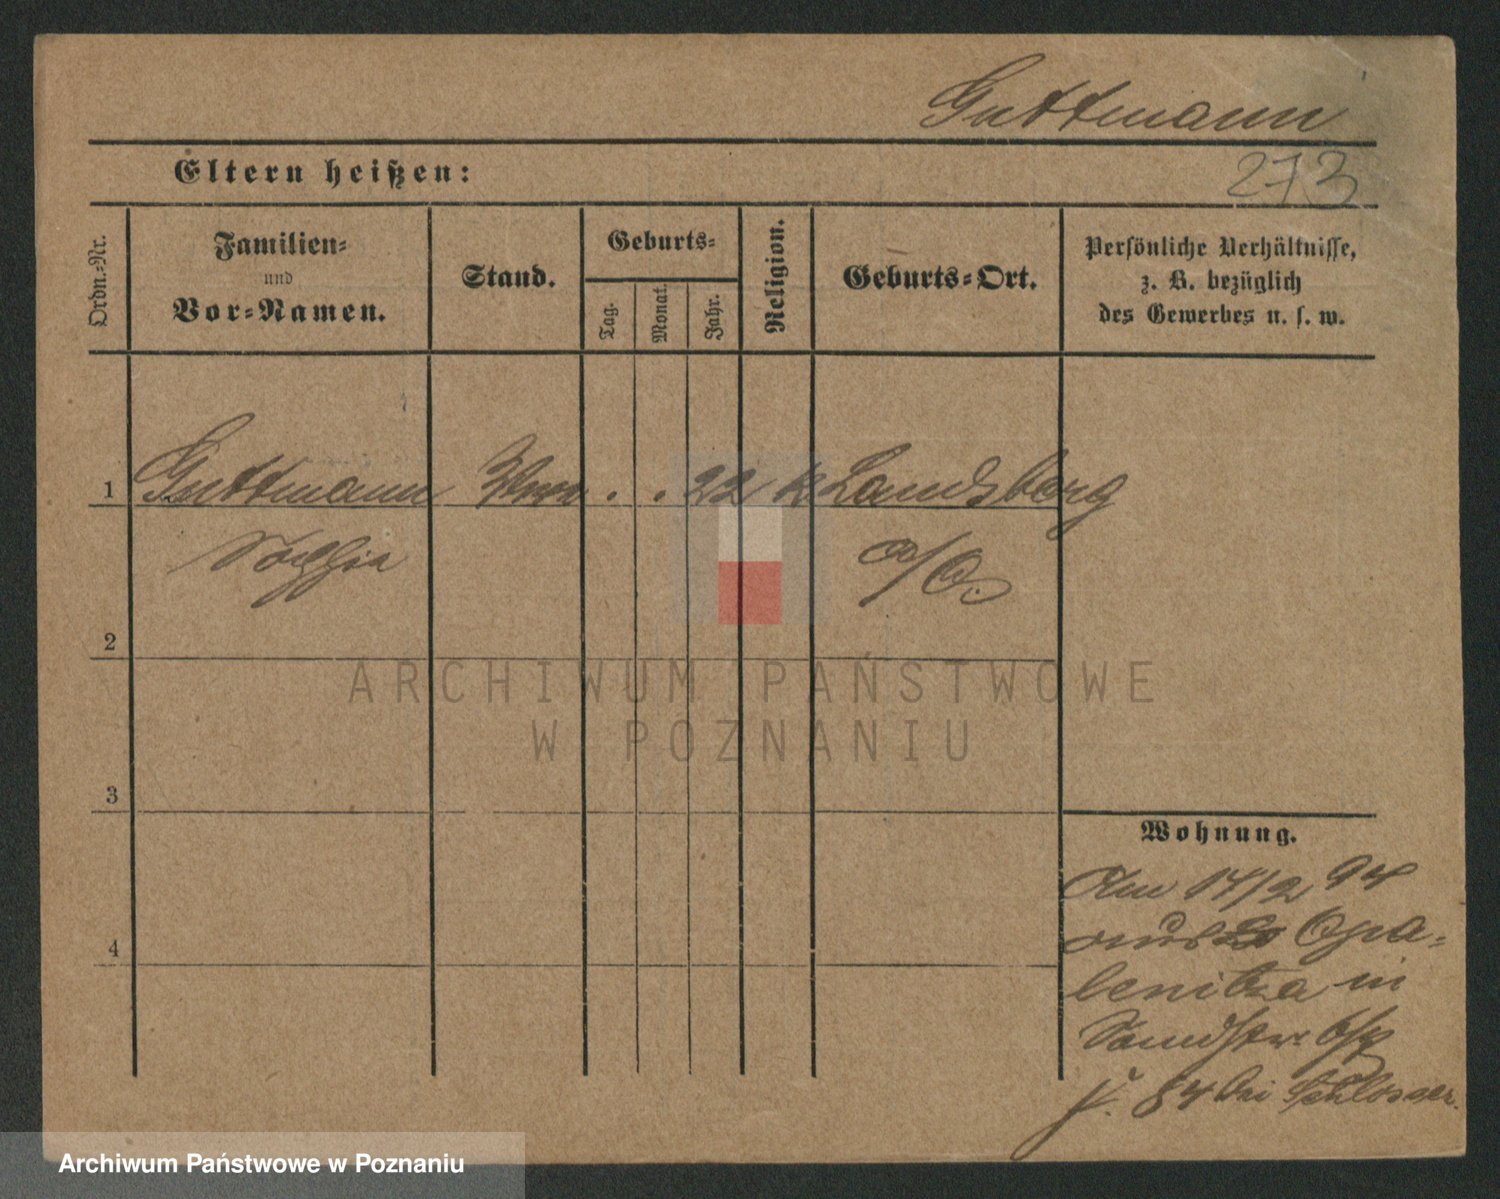 Guttmann
Eltern heißen:
273
Ordn.-Nr.
Familien-
und
Vor-Namen.
Stand.
Geburts-
Tag.
Monat.
Jahr.
Religion.
Geburts-Ort.
Persönliche Verhältnisse,
z. B. bezüglich
des Gewerbes u. s. w.
1
Guttmann
. . 22 k Landsberg
Sophia
a/O.
2
ARCHIWUM PAŃSTWOWE
W POZNANIU
3
Wohnung.
Am 14/2 94
aus Opa-
lenitza in
4
Sandstr.
J. 84 bei Schlosser.
Archiwum Państwowe w Poznaniu